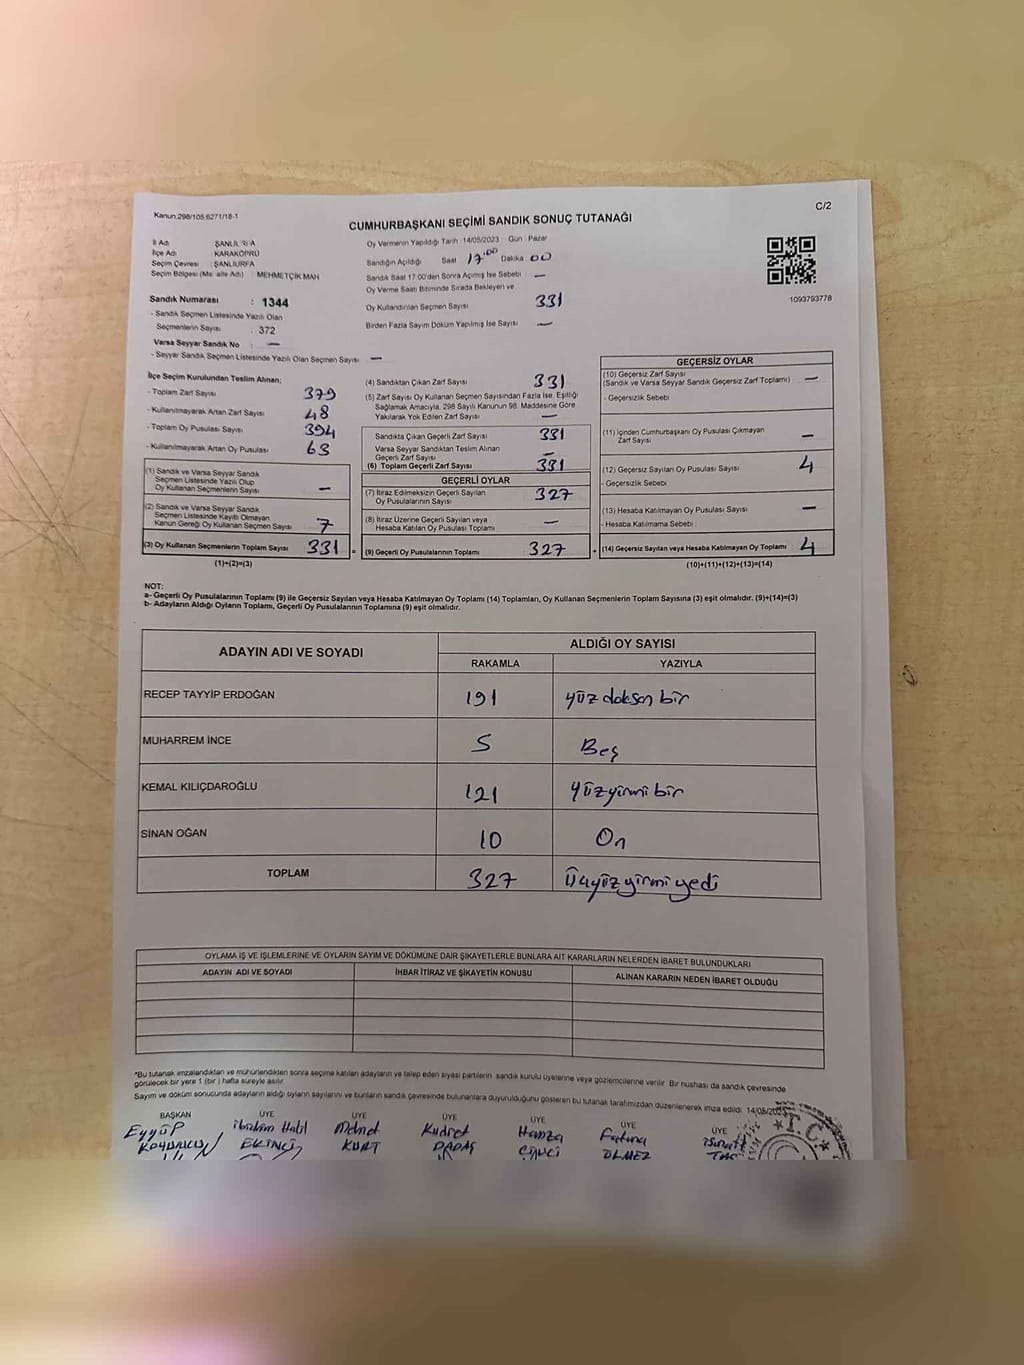 Kanun:298/105,6271/18-1
C/2
CUMHURBAŞKANI SEÇİMİ SANDIK SONUÇ TUTANAĞI
İl Adı : ŞANLIURFA
İlçe Adı : KARAKÖPRÜ
Seçim Çevresi : ŞANLIURFA
Seçim Bölgesi (Mahalle Adı) : MEHMETÇİK MAH
Sandık Numarası : 1344
- Sandık Seçmen Listesinde Yazılı Olan
Seçmenlerin Sayısı : 372
Varsa Seyyar Sandık No : —
- Seyyar Sandık Seçmen Listesinde Yazılı Olan Seçmen Sayısı —
Oy Vermenin Yapıldığı Tarih :14/05/2023 Gün : Pazar
Sandığın Açıldığı Saat 17:00 Dakika 00
Sandık Saat 17:00'den Sonra Açılmış İse Sebebi —
Oy Verme Saati Bitiminde Sırada Bekleyen ve
Oy Kullandırılan Seçmen Sayısı 331
Birden Fazla Sayım Döküm Yapılmış İse Sayısı —
1093793778
İlçe Seçim Kurulundan Teslim Alınan;
- Toplam Zarf Sayısı 379
- Kullanılmayarak Artan Zarf Sayısı 48
- Toplam Oy Pusulası Sayısı 394
- Kullanılmayarak Artan Oy Pusulası 63
(1) Sandık ve Varsa Seyyar Sandık
Seçmen Listesinde Yazılı Olup
Oy Kullanan Seçmenlerin Sayısı —
(2) Sandık ve Varsa Seyyar Sandık
Seçmen Listesinde Kayıtlı Olmayan
Kanun Gereği Oy Kullanan Seçmen Sayısı 7
(3) Oy Kullanan Seçmenlerin Toplam Sayısı 331 =
(1)+(2)=(3)
(4) Sandıktan Çıkan Zarf Sayısı 331
(5) Zarf Sayısı Oy Kullanan Seçmen Sayısından Fazla İse, Eşitliği
Sağlamak Amacıyla, 298 Sayılı Kanunun 98. Maddesine Göre
Yakılarak Yok Edilen Zarf Sayısı —
Sandıkta Çıkan Geçerli Zarf Sayısı 331
Varsa Seyyar Sandıktan Teslim Alınan
Geçerli Zarf Sayısı —
(6) Toplam Geçerli Zarf Sayısı 331
GEÇERLİ OYLAR
(7) İtiraz Edilmeksizin Geçerli Sayılan
Oy Pusulalarının Sayısı 327
(8) İtiraz Üzerine Geçerli Sayılan veya
Hesaba Katılan Oy Pusulası Toplamı —
(9) Geçerli Oy Pusulalarının Toplamı 327 +
GEÇERSİZ OYLAR
(10) Geçersiz Zarf Sayısı
(Sandık ve Varsa Seyyar Sandık Geçersiz Zarf Toplamı) —
- Geçersizlik Sebebi
(11) İçinden Cumhurbaşkanı Oy Pusulası Çıkmayan
Zarf Sayısı —
(12) Geçersiz Sayılan Oy Pusulası Sayısı 4
- Geçersizlik Sebebi
(13) Hesaba Katılmayan Oy Pusulası Sayısı —
- Hesaba Katılmama Sebebi :
(14) Geçersiz Sayılan veya Hesaba Katılmayan Oy Toplamı 4
(10)+(11)+(12)+(13)=(14)
NOT:
a- Geçerli Oy Pusulalarının Toplamı (9) ile Geçersiz Sayılan veya Hesaba Katılmayan Oy Toplamı (14) Toplamları, Oy Kullanan Seçmenlerin Toplam Sayısına (3) eşit olmalıdır. (9)+(14)=(3)
b- Adayların Aldığı Oyların Toplamı, Geçerli Oy Pusulalarının Toplamına (9) eşit olmalıdır.
ADAYIN ADI VE SOYADI
ALDIĞI OY SAYISI
RAKAMLA YAZIYLA
RECEP TAYYİP ERDOĞAN 191 yüz doksan bir
MUHARREM İNCE 5 Beş
KEMAL KILIÇDAROĞLU 121 yüzyirmi bir
SİNAN OĞAN 10 On
TOPLAM 327 Üçyüz yirmi yedi
OYLAMA İŞ VE İŞLEMLERİNE VE OYLARIN SAYIM VE DÖKÜMÜNE DAİR ŞİKAYETLERLE BUNLARA AİT KARARLARIN NELERDEN İBARET BULUNDUKLARI
ADAYIN ADI VE SOYADI İHBAR İTİRAZ VE ŞİKAYETİN KONUSU ALINAN KARARIN NEDEN İBARET OLDUĞU
*Bu tutanak imzalandıktan ve mühürlendikten sonra seçime katılan adayların ve talep eden siyasi partilerin sandık kurulu üyelerine veya gözlemcilerine verilir. Bir nüshası da sandık çevresinde
görülecek bir yere 1 (bir) hafta süreyle asılır.
Sayım ve döküm sonucunda adayların aldığı oyların sayılarını ve bunların sandık çevresinde bulunanlara duyurulduğunu gösteren bu tutanak tarafımızdan düzenlenerek imza edildi. 14/05/2023
BAŞKAN ÜYE ÜYE ÜYE ÜYE ÜYE ÜYE
Eyyüp İbrahim Halil Mehmet Kudret Hamza Fatma
EKİNCİ KURT ÖLMEZ
T.C.